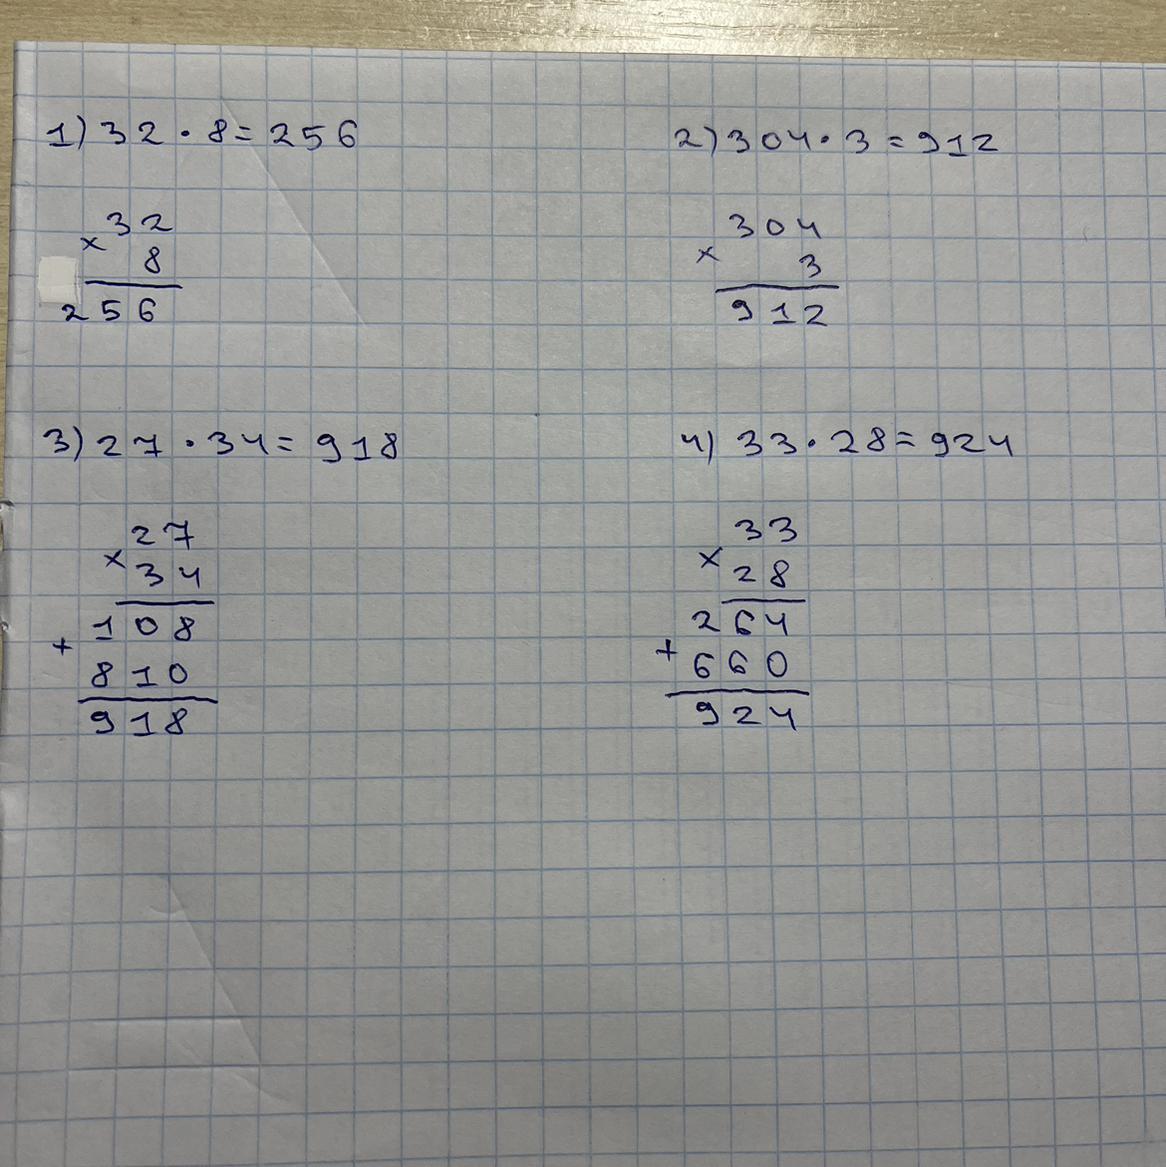 1) 32 · 8 = 256
32
× 8
256
2) 304 · 3 = 912
304
× 3
912
3) 27 · 34 = 918
27
× 34
108
+ 810
918
4) 33 · 28 = 924
33
× 28
264
+ 660
924